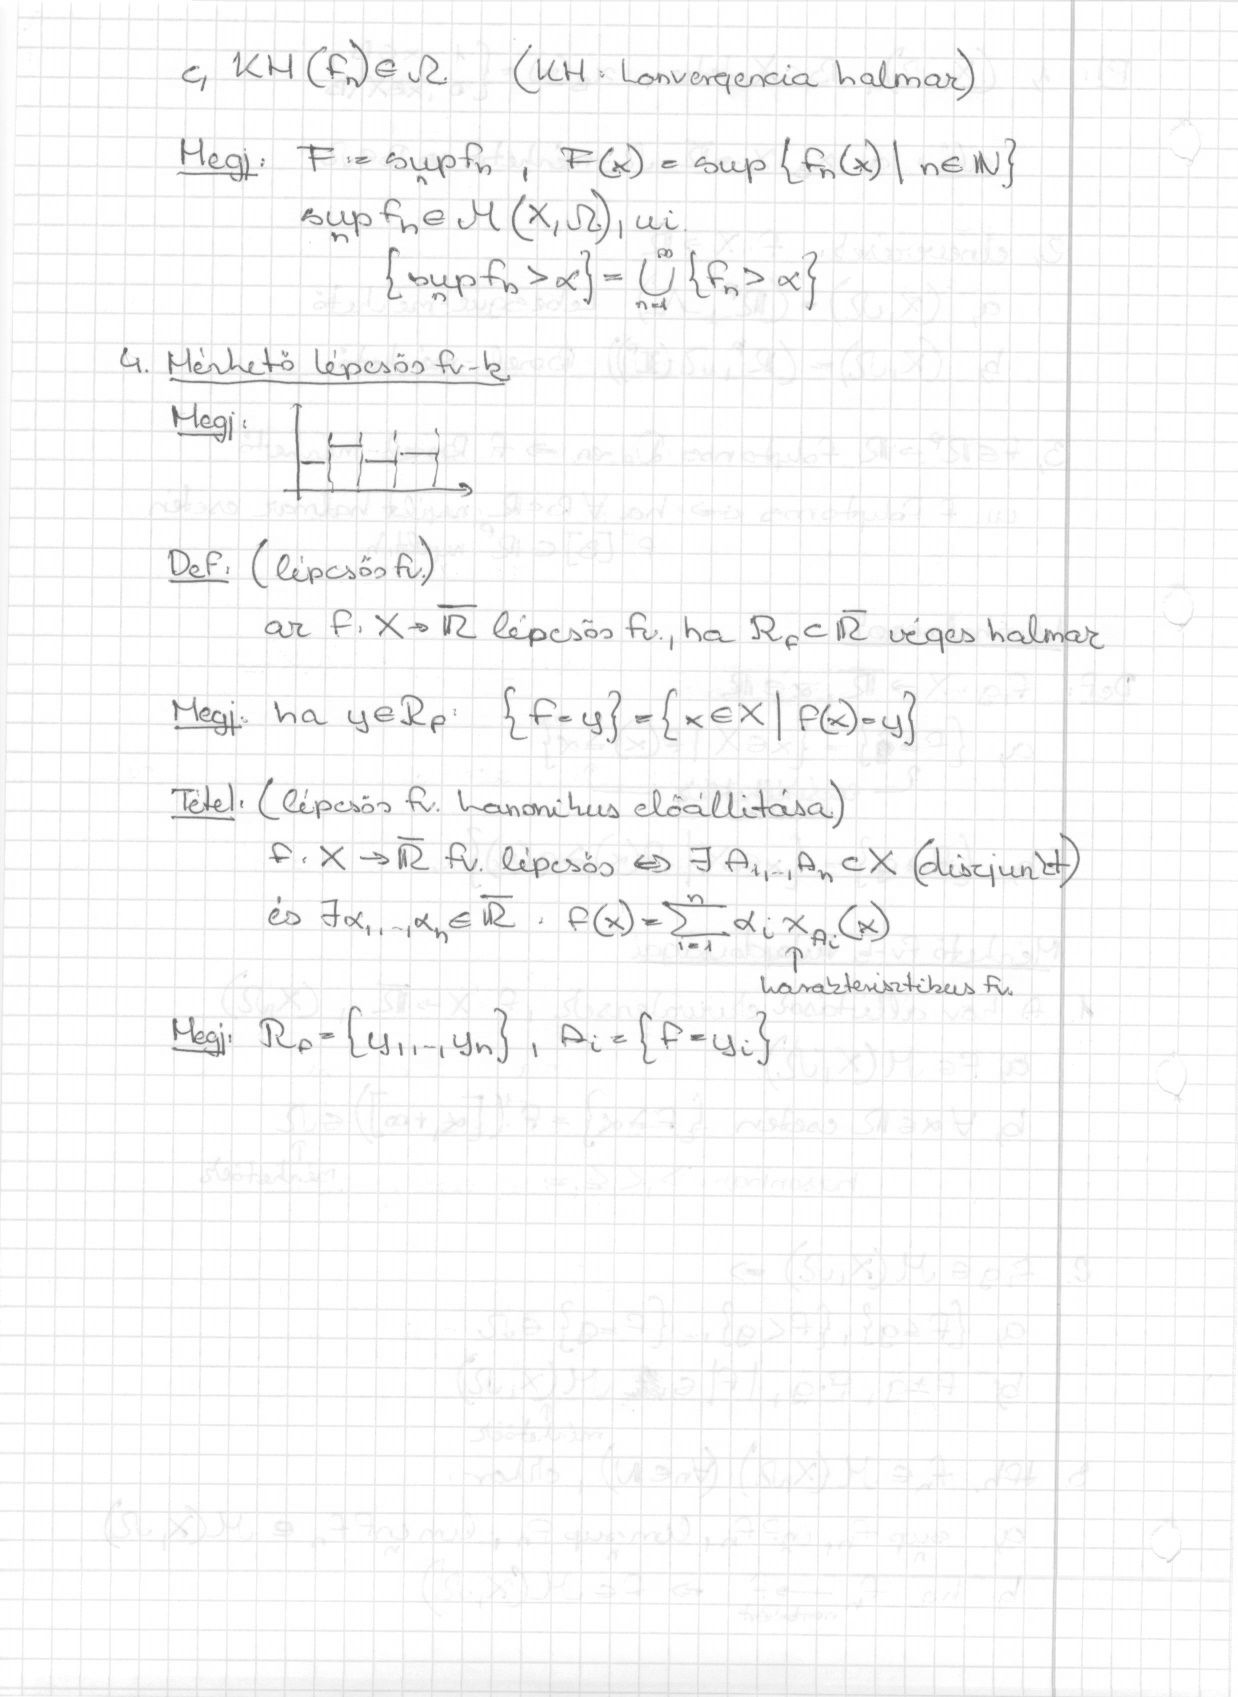 c, KH(fₙ) ∈ Ω (KH: konvergencia halmaz)
Megj: F := sup_n fₙ, F(x) = sup {fₙ(x) | n ∈ ℕ}
sup_n fₙ ∈ M(X, Ω), ui.
{sup_n fₙ > α} = ⋃_{n=1}^{∞} {fₙ > α}
4. Mérhető lépcsős fv-k
Megj:
Def: (lépcsős fv.)
az f: X → ℝ̅ lépcsős fv., ha R_f ⊂ ℝ̅ véges halmaz
Megj: ha y ∈ R_f: {f = y} = {x ∈ X | f(x) = y}
Tétel: (lépcsős fv. kanonikus előállítása)
f: X → ℝ̅ fv. lépcsős ⇔ ∃ A₁,..,Aₙ ⊂ X (diszjunkt)
és ∃ α₁,..,αₙ ∈ ℝ̅ : f(x) = ∑_{i=1}^{n} αᵢ χ_{Aᵢ}(x)
↑
karakterisztikus fv.
Megj: R_f = {y₁,..,yₙ}, Aᵢ = {f = yᵢ}